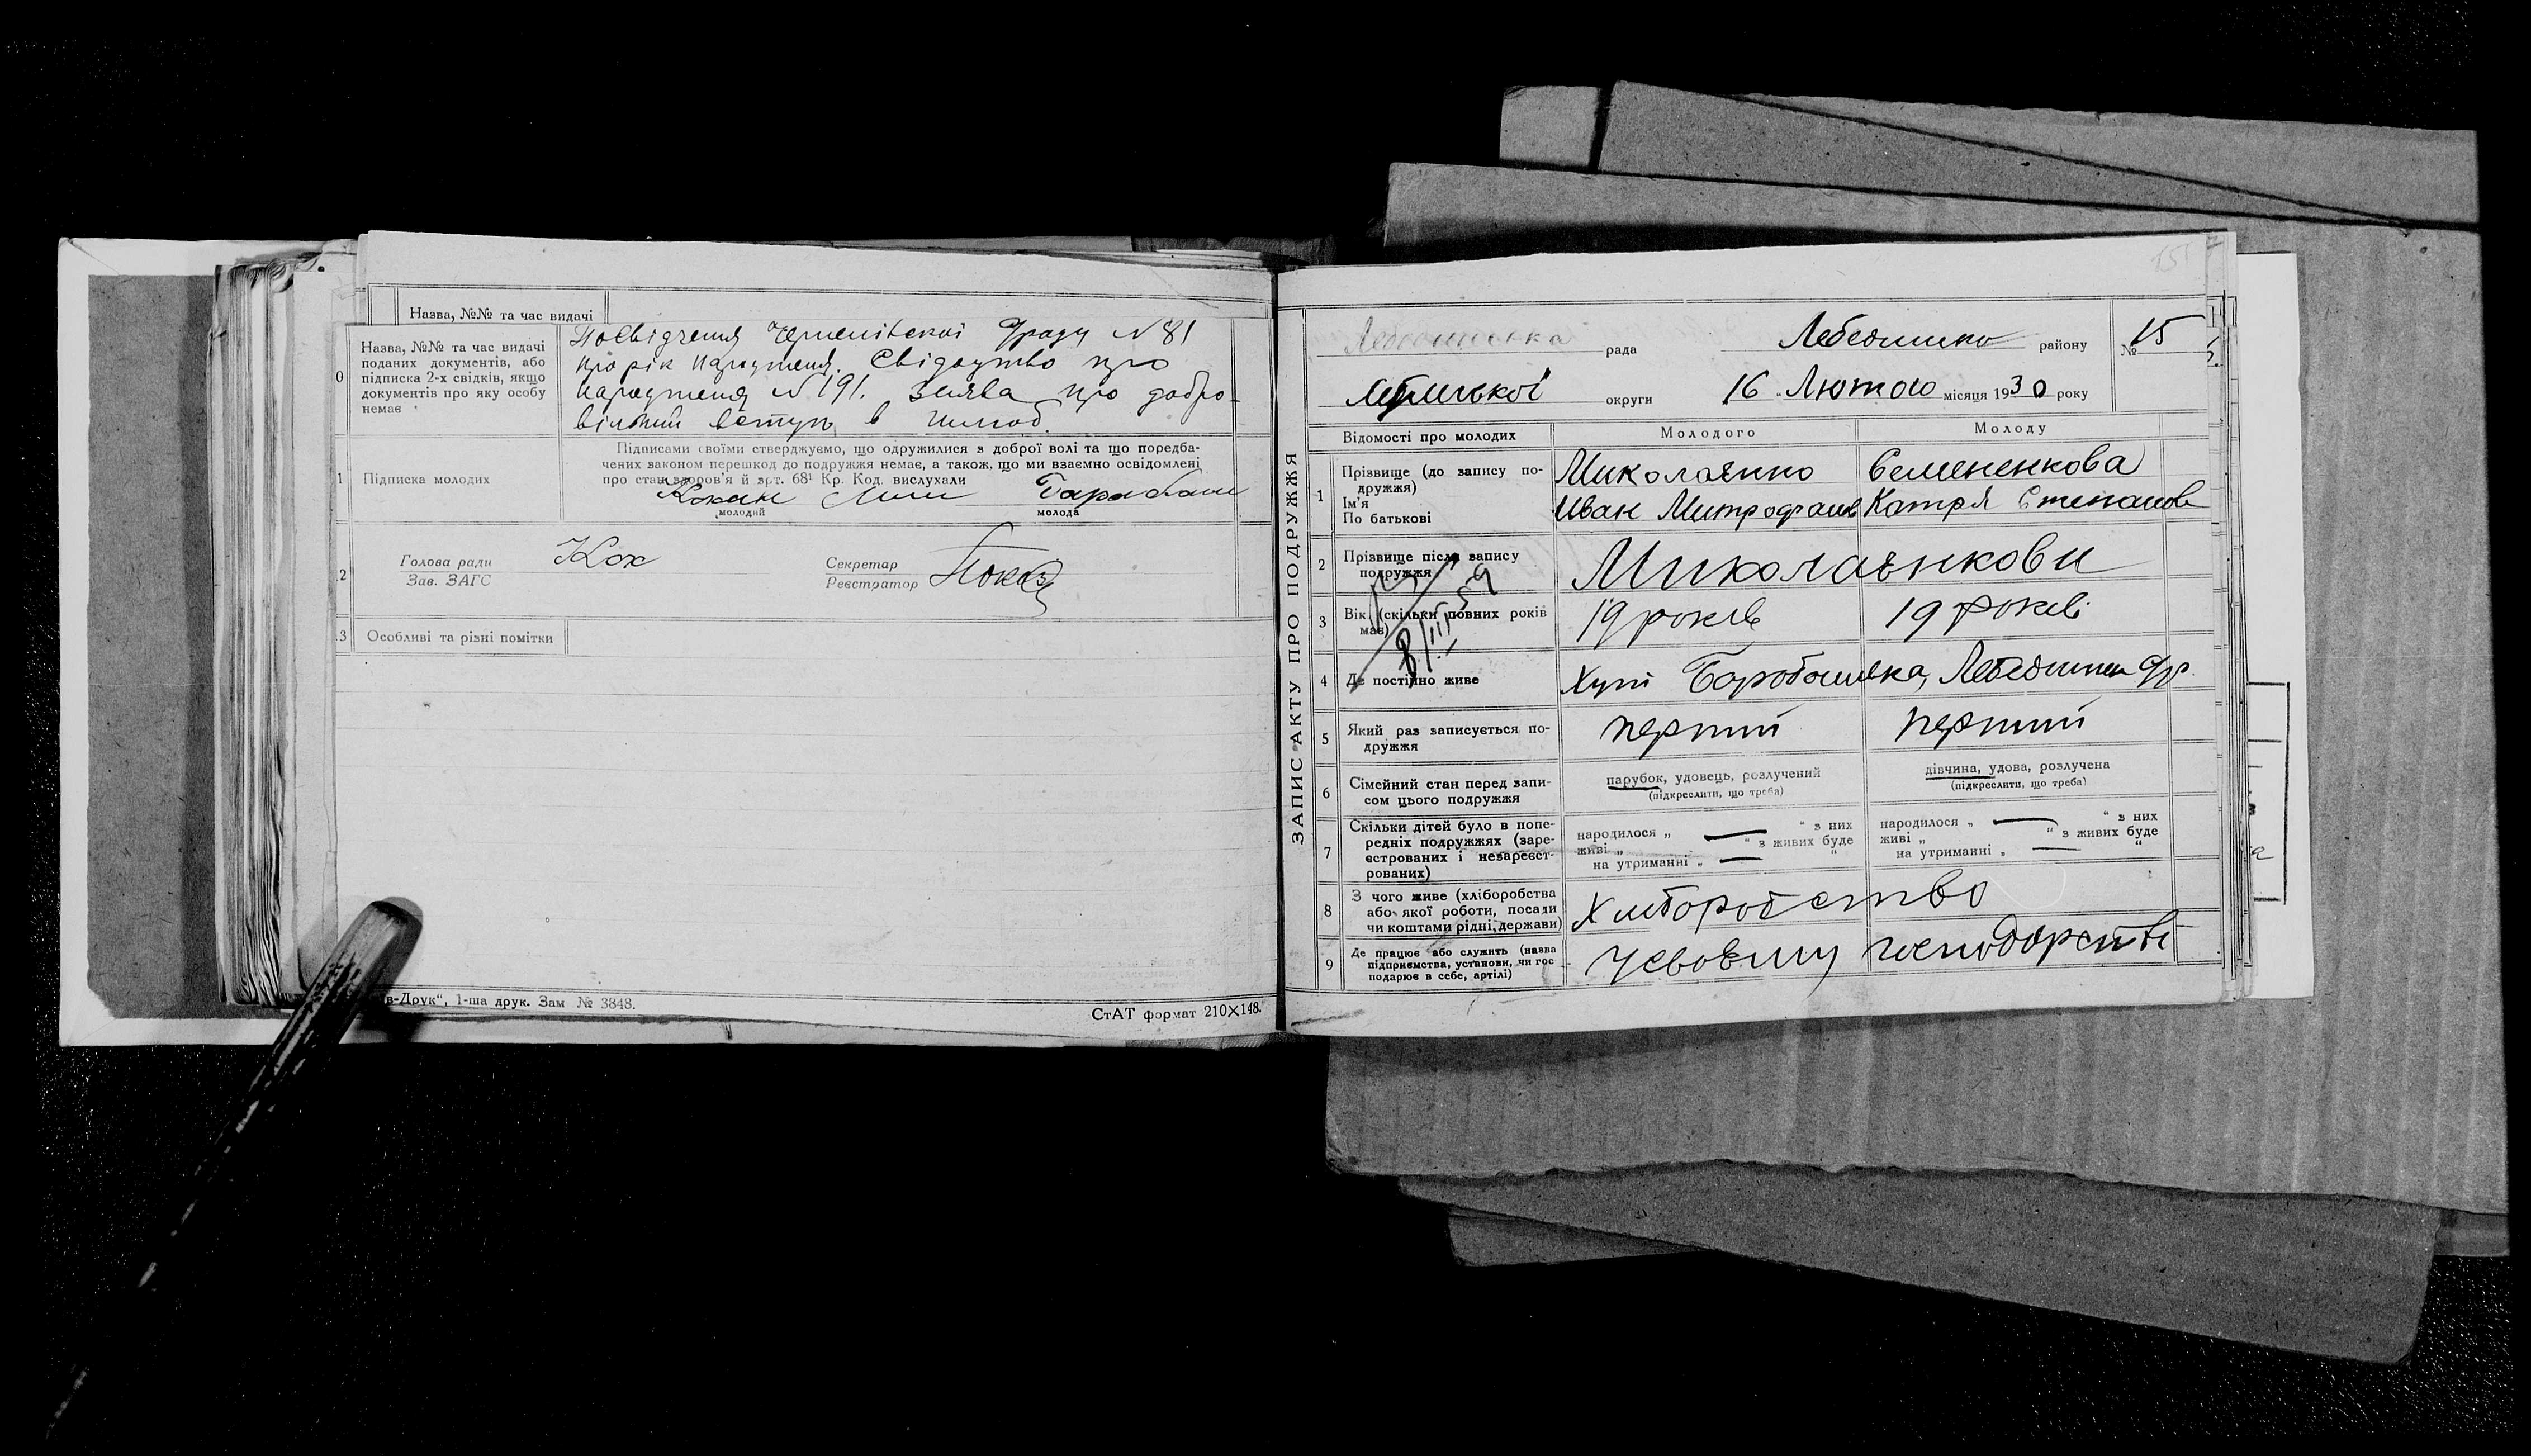 Назва, №№ та час видачі
0
Назва, №№ та час видачі
поданих документів, або
підписка 2-х свідків, якщо
документів про яку особу
немає
Посвідчення N 81
про рік народження. Свідоцтво про
народження N 191. Заява про добро-
вільний вступ в шлюб.
1
Підписка молодих
Підписами своїми стверджуємо, що одружилися з доброї волі та що передба-
чених законом перешкод до подружжя немає, а також, що ми взаємно освідомлені
про стан здоров'я й арт. 68¹ Кр. Код. вислухали
молодий
молода
2
Голова ради
Зав. ЗАГС
Кох
Секретар
Реєстратор
3
Особливі та різні помітки
в-Друк“, 1-ша друк. Зам № 3848.
СтАТ формат 210×148.
151
ЗАПИС АКТУ ПРО ПОДРУЖЖЯ
Лебединська рада
Лебединсько району
№ 15
округи
16 Лютого місяця 1930 року
Відомості про молодих
Молодого
Молоду
1
Прізвище (до запису по-
дружжя)
Ім'я
По батькові
Миколаєнко
Иван Митрофанов
Семененкова
Катря Степанов
2
Прізвище після запису
подружжя
Миколаєнкови
3
Вік (скільки повних років
має)
19 років
19 років
8/III 59
4
Де постійно живе
Хут Лебединськ
5
Який раз записується по-
дружжя
перший
перший
6
Сімейний стан перед запи-
сом цього подружжя
парубок, удовець, розлучений
(підкреслити, що треба)
дівчина, удова, розлучена
(підкреслити, що треба)
7
Скільки дітей було в попе-
редніх подружжях (заре-
єстрованих і незареєст-
рованих)
народилося „ — “ з них
живі „ “ з живих буде
на утриманні „ — “
народилося „ — “ з них
живі „ “ з живих буде
на утриманні „ — “
8
З чого живе (хліборобства
або якої роботи, посади
чи коштами рідні, держави)
Хліборобство
9
Де працює або служить (назва
підприємства, установи, чи гос
подарює в себе, артілі)
Усвоєму господарстві